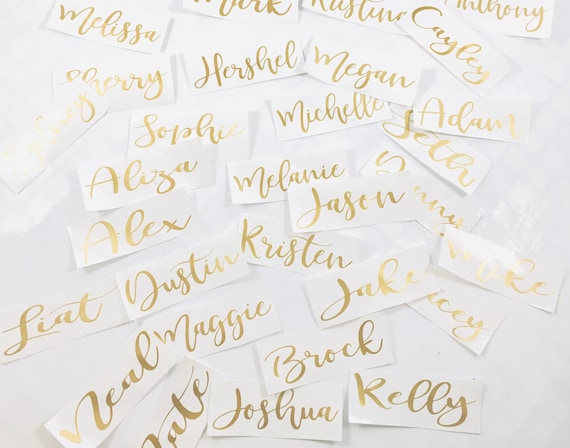 Melissa
Mark
Kristina
Anthony
Cayley
Sherry
Hershel
Megan
Michelle
Adam
Sophie
Seth
Aliza
Melanie
Jason
Alex
Kristen
Dustin
Jake
Liat
Maggie
Brock
Neal
Joshua
Kelly